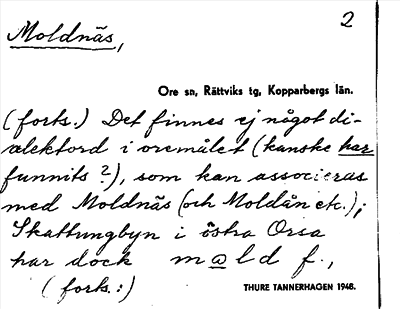 2
Moldnäs,
Ore sn, Rättviks tg, Kopparbergs län.
(forts.) Det finnes ej något di-
alektord i oremålet (kanske har
funnits?), som kan associeras
med Moldnäs (och Moldån etc.);
Skattungbyn i östra Orsa
har dock mɑld f.,
(forts.:)
THURE TANNERHAGEN 1948.